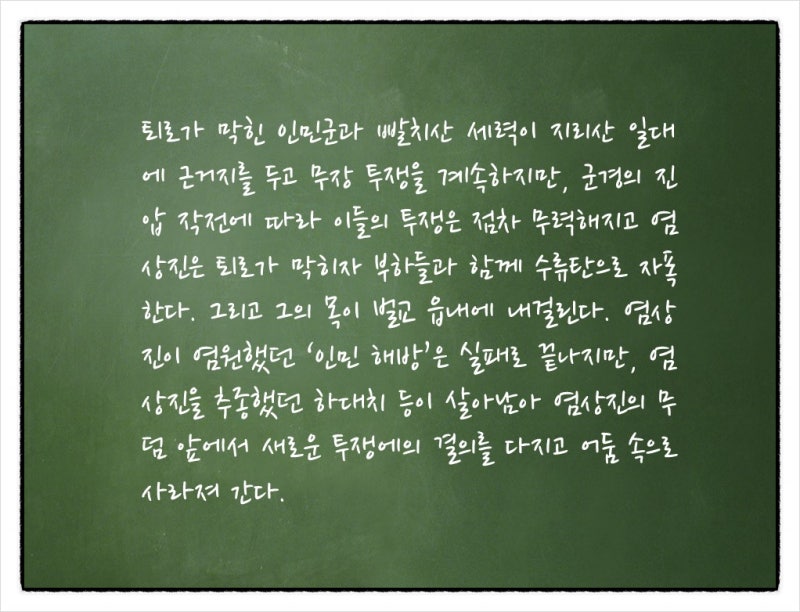 퇴로가 막힌 인민군과 빨치산 세력이 지리산 일대
에 근거지를 두고 무장 투쟁을 계속하지만, 군경의 진
압 작전에 따라 이들의 투쟁은 점차 무력해지고 염
상진은 퇴로가 막히자 부하들과 함께 수류탄으로 자폭
한다. 그리고 그의 목이 벌교 읍내에 내걸린다. 염상
진이 염원했던 ‘인민 해방’은 실패로 끝나지만, 염
상진을 추종했던 하대치 등이 살아남아 염상진의 무
덤 앞에서 새로운 투쟁에의 결의를 다지고 어둠 속으로
사라져 간다.